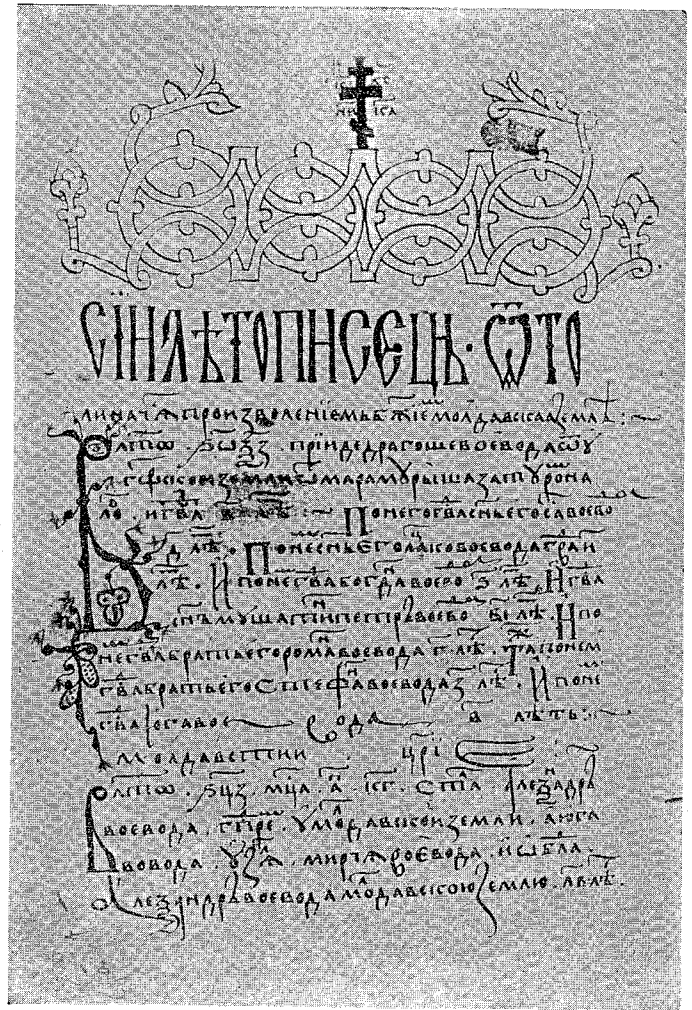 СЇИ ЛѢТОПИСЕЦЬ · Ѿ ТО
ли начѧ произволенїемь бж҃їе молдавскаа землѣ :~
В лѣто ҂ѕѡѯз . прїиде драгоше воевода ѿ у
гръскои земли ѿ марамурыша за туро на
ло . и гва лѣ :~ По не гва снь его са воево
да лѣ . По не снь его лацко воевода гва и
лѣ . И по не гва богда воево ѕ лѣ . И гва
снъ мушати петръ воево ві лѣ . И по
не гва брать его рома воевода г лѣ . Та по нем
гва брать его стефа воевода з лѣ . И по не
гва юга вое вода в лѣть :~
молдавстии црїи
В лѣто ҂ѕцз . мца а . кг . ста алезадрь
воевода . гпрь . у модавскои земли . а юга
воевода . узѧ . мирчѧ воевода . и ѡбла .
алезандрь воевода модавскою землю . лв лѣ .